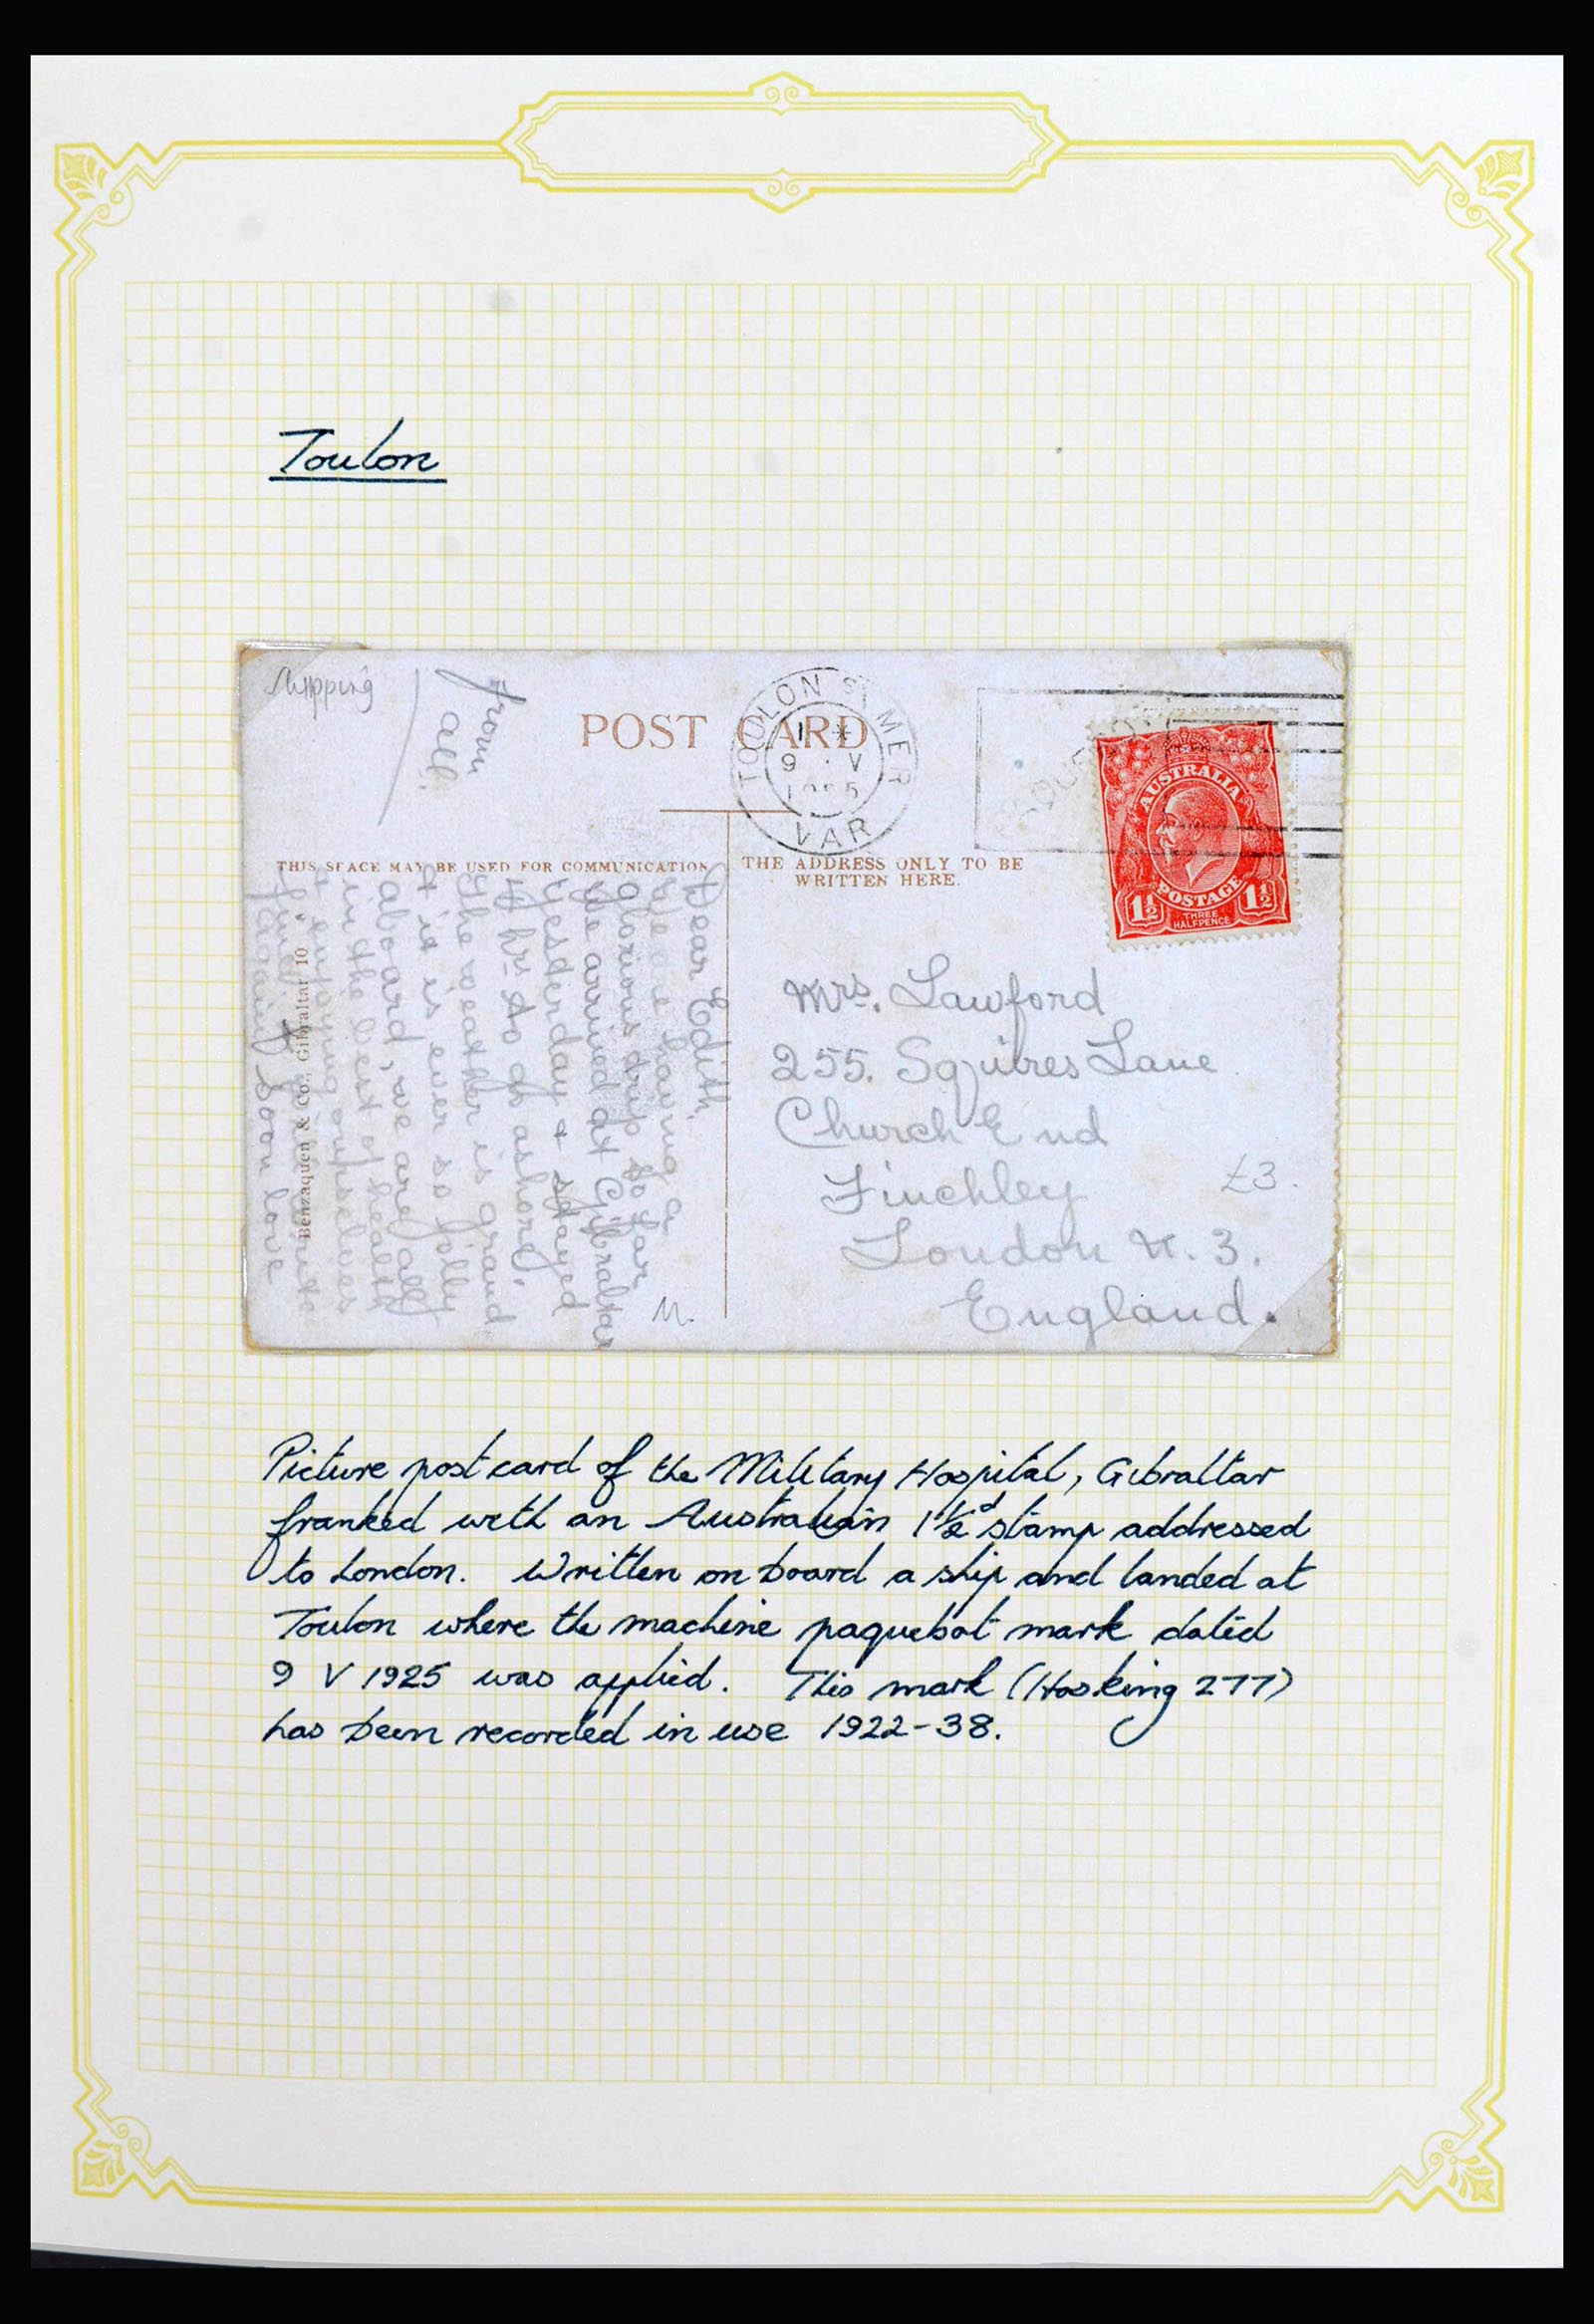 Toulon
Shipping
from
all.
POST CARD
TOULON S MER
1 *
9 · V
VAR
THIS SPACE MAY BE USED FOR COMMUNICATION
THE ADDRESS ONLY TO BE
WRITTEN HERE.
AUSTRALIA
POSTAGE
1½ 1½
THREE
HALFPENCE
Dear Edith,
We are having a
glorious trip so far
We arrived at Gibraltar
yesterday & stayed
4 hrs to go ashore,
The weather is grand
& it is ever so jolly
aboard, we are all
in the best of health
& enjoying ourselves
again soon love
Benzaquen & Co., Gibraltar 10
Mrs. Lawford
255. Squires Lane
Church End
Finchley
London N. 3.
England.
£3.
M.
Picture postcard of the Military Hospital, Gibraltar
franked with an Australian 1½d stamp addressed
to London. Written on board a ship and landed at
Toulon where the machine paquebot mark dated
9 V 1925 was applied. This mark (Hosking 277)
has been recorded in use 1922-38.